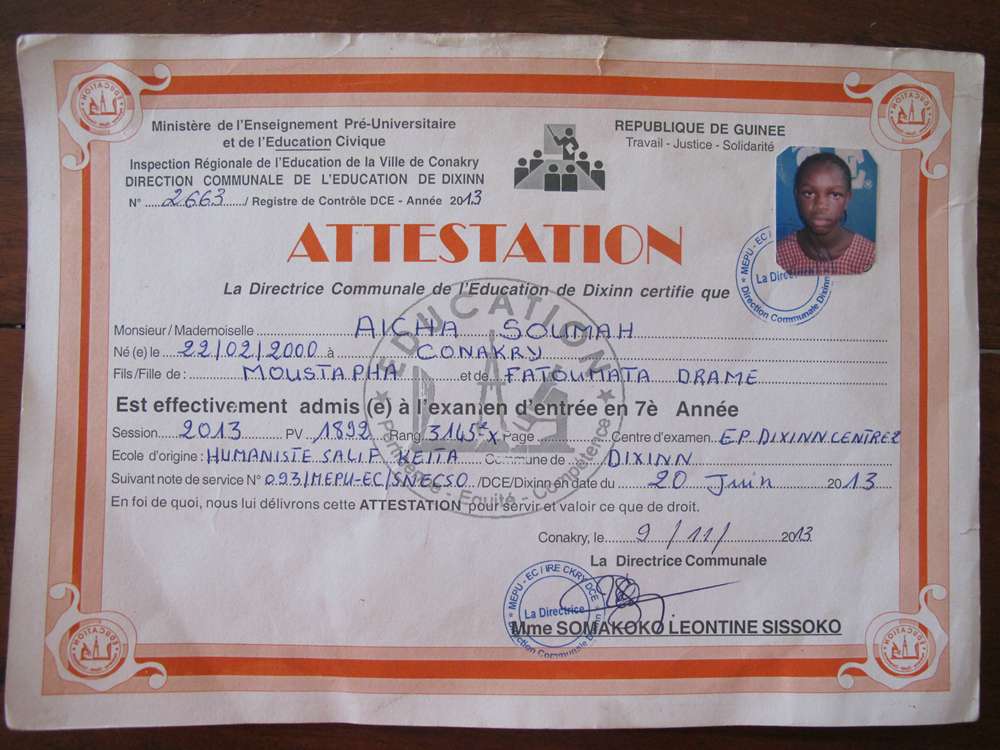 Ministère de l'Enseignement Pré-Universitaire
et de l'Education Civique
Inspection Régionale de l'Education de la Ville de Conakry
DIRECTION COMMUNALE DE L'EDUCATION DE DIXINN
N° ....2663..../ Registre de Contrôle DCE - Année 2013
REPUBLIQUE DE GUINEE
Travail - Justice - Solidarité
ATTESTATION
La Directrice Communale de l'Education de Dixinn certifie que
Monsieur/Mademoiselle AICHA SOUMAH
Né (e) le 22/02/2000 à CONAKRY
Fils/Fille de : MOUSTAPHA et de FATOUMATA DRAME
Est effectivement admis (e) à l'examen d'entrée en 7è Année
Session 2013 PV 1892 Rang 3145è x Page Centre d'examen EP DIXINN CENTRE 2
Ecole d'origine : HUMANISTE SALIF KEITA Commune de DIXINN
Suivant note de service N° 093/MEPU-EC/SNECSO /DCE/Dixinn en date du 20 Juin 2013
En foi de quoi, nous lui délivrons cette ATTESTATION pour servir et valoir ce que de droit.
Conakry, le 9/11/ 2013
La Directrice Communale
Mme SOMAKOKO LEONTINE SISSOKO
MEPU - EC / IRE CKRY DCE
La Directrice
Direction Communale Dixinn
MEPU - EC
La Directrice
Direction Communale Dixinn
EDUCATION
Equité - Compétence
EDUCATION
EDUCATION
EDUCATION
EDUCATION